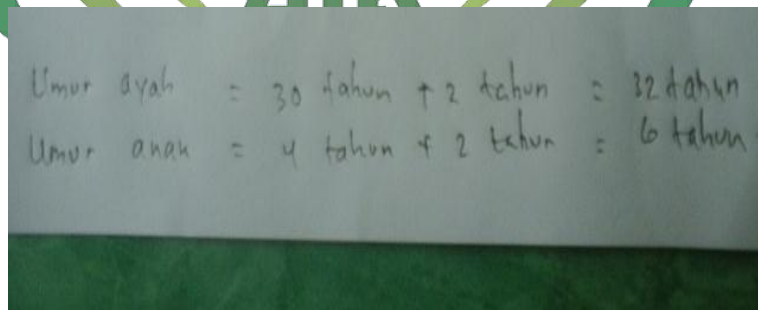 Umur ayah = 30 tahun + 2 tahun = 32 tahun
Umur anak = 4 tahun + 2 tahun = 6 tahun